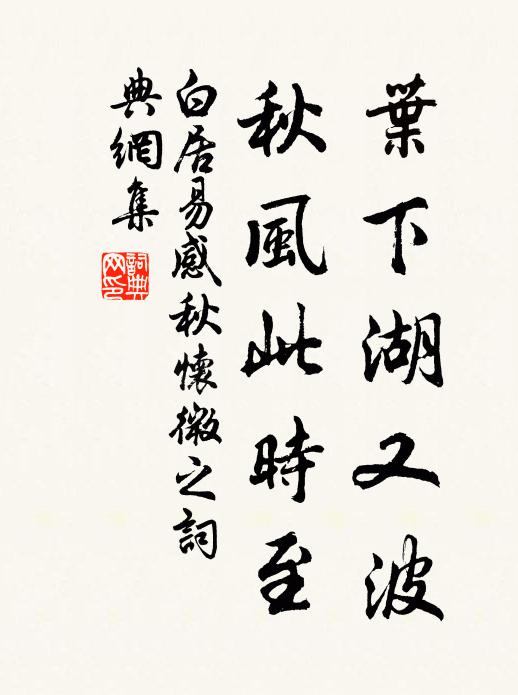 葉下湖又波
秋風此時至
白居易感秋懷微之詞
典網集
詞典
网印